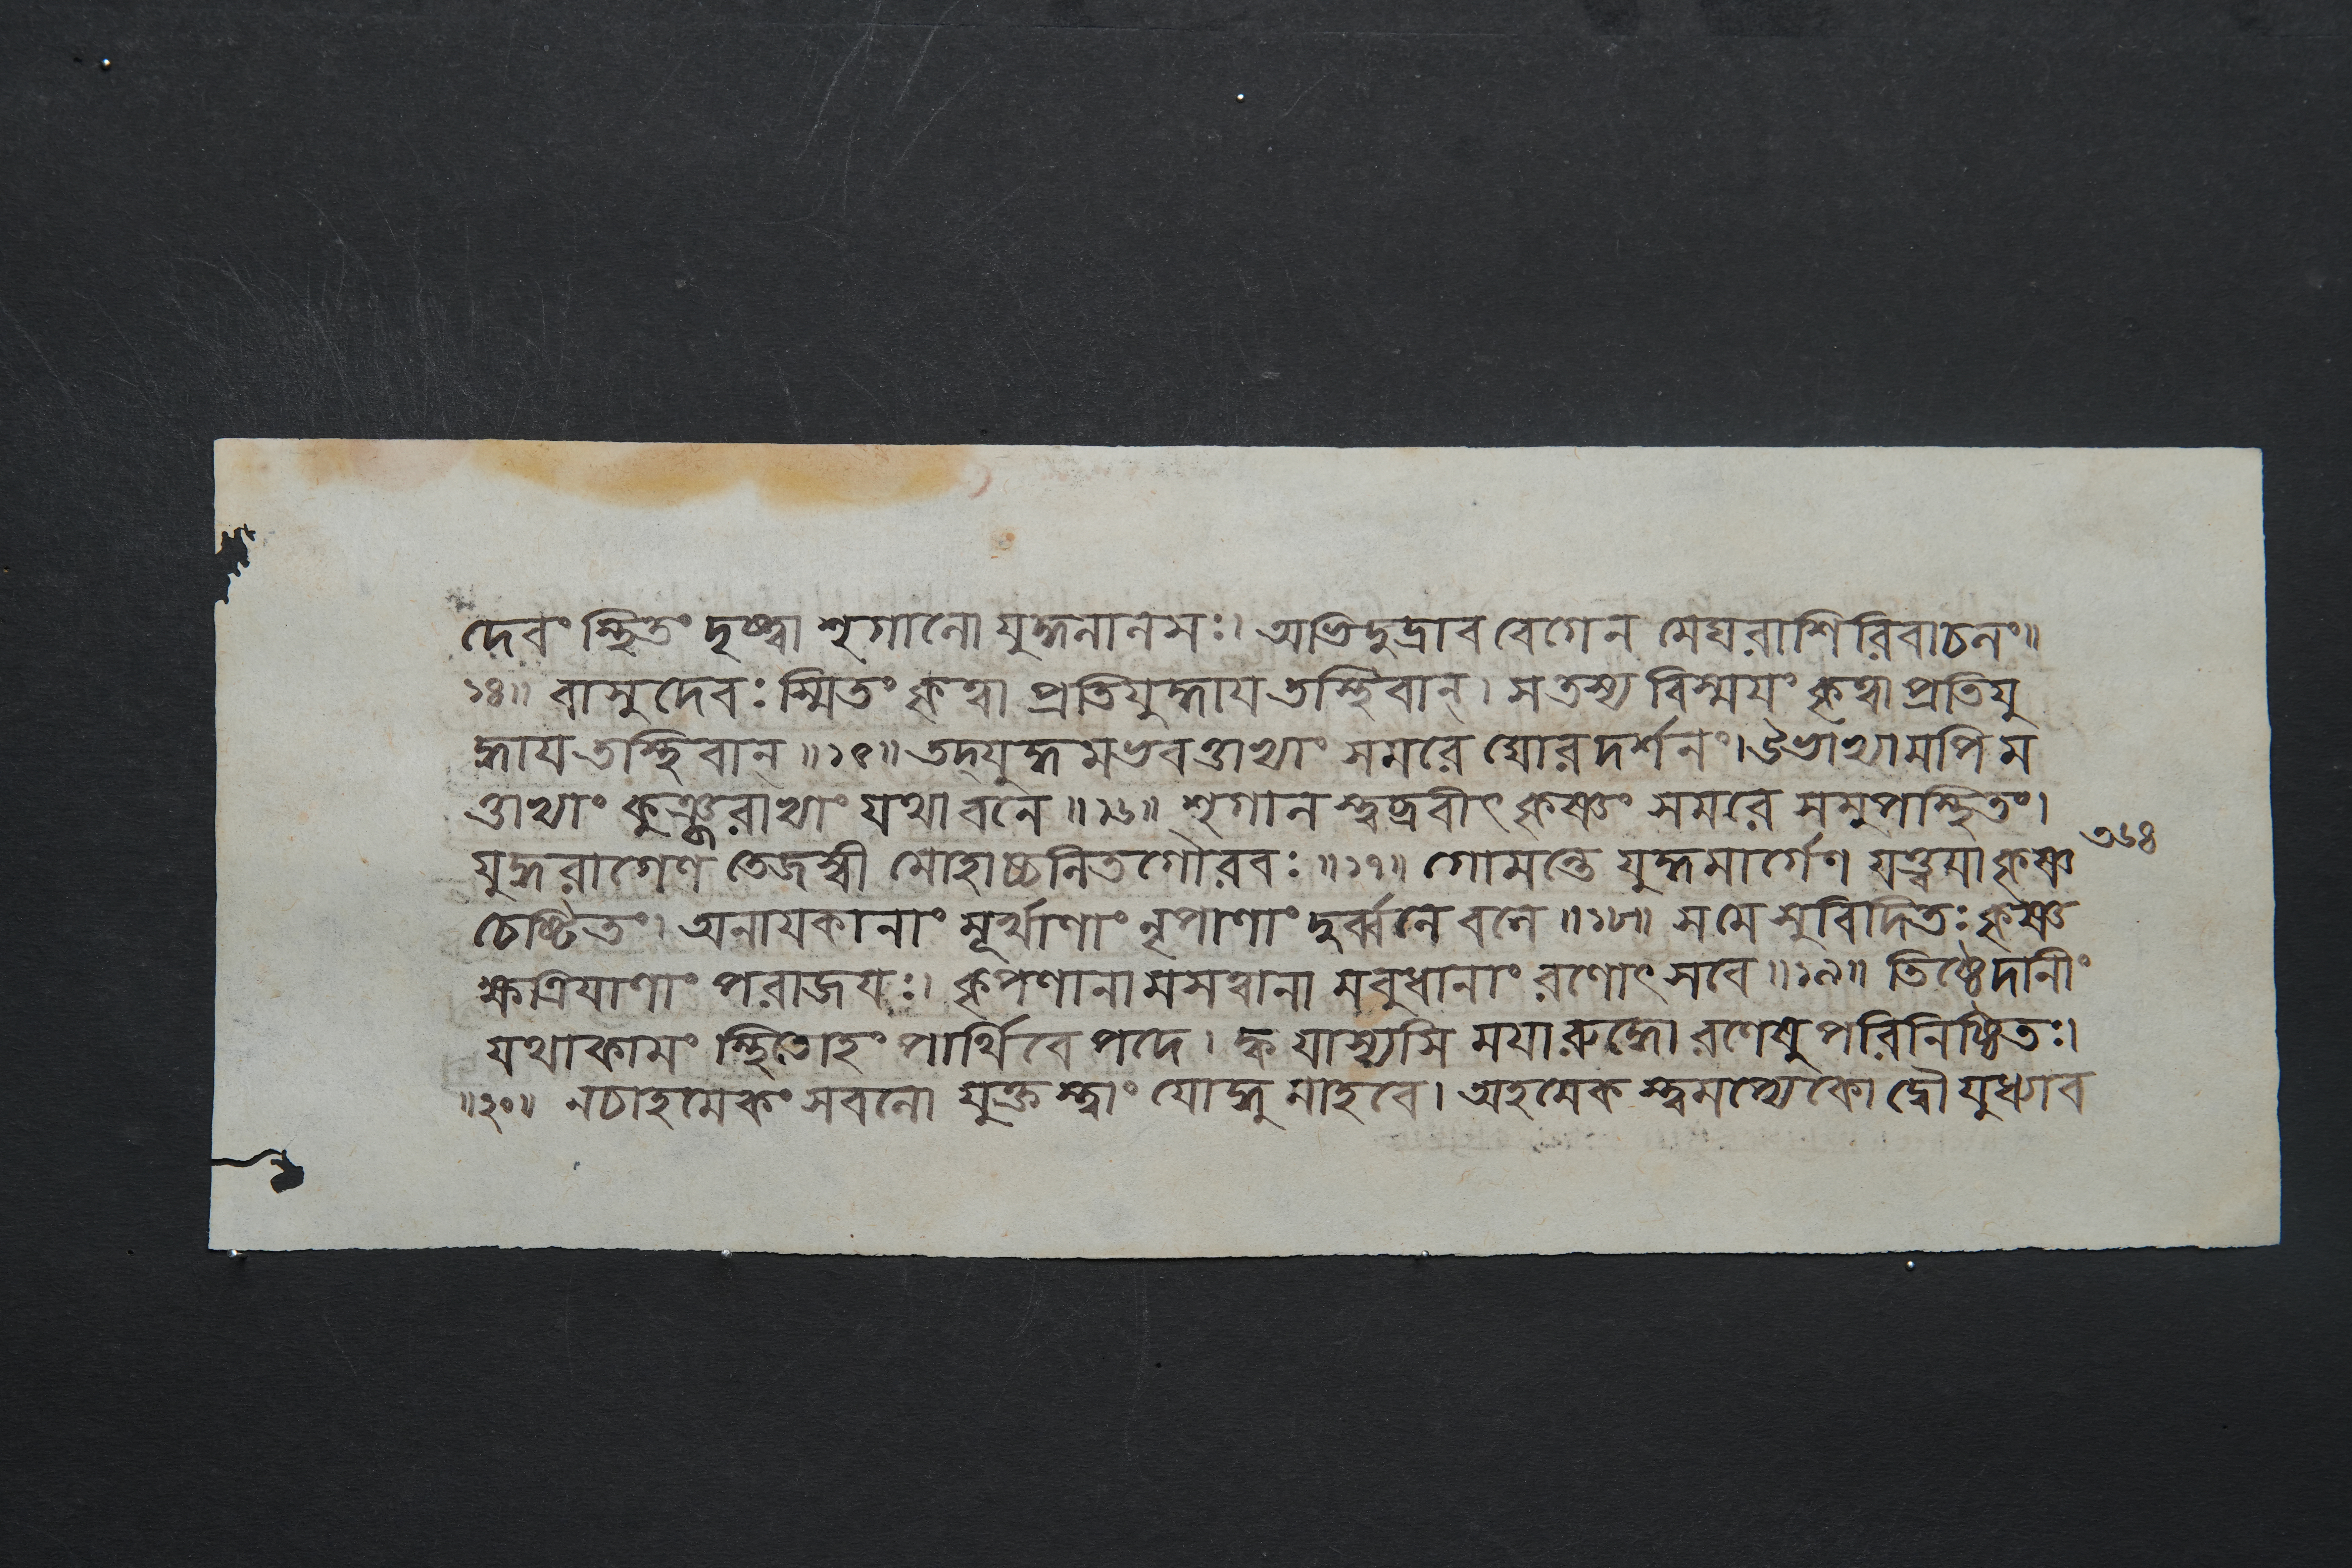 দেবং স্থিতং দৃষ্ট্বা শৃগালো যুদ্ধলালসঃ। অভিদুদ্রাব বেগেন মেঘরাশিরিবাচলং॥
১৪॥ বাসুদেবঃ স্মিতং কৃত্বা প্রতিযুদ্ধায তস্থিবান্। স তস্য বিস্মযং কৃত্বা প্রতিযু
দ্ধায তস্থিবান্॥১৫॥ তদ্যুদ্ধমভবত্তাভ্যাং সমরে ঘোরদর্শনং। উভাভ্যামপি ম
ত্তাভ্যাং কুঞ্জরাভ্যাং যথা বনে॥১৬॥ শৃগালস্ত্বব্রবীৎ কৃষ্ণং সমরে সমুপস্থিতং।
যুদ্ধরাগেণ তেজস্বী মোহাচ্চলিতগৌরবঃ॥১৭॥ গোমন্তে যুদ্ধমার্গেণ যত্ত্বযা কৃষ্ণ
চেষ্টিতং। অনাযকানাং মূর্খাণাং নৃপাণাং দুর্ব্বলে বলে॥১৮॥ স মে সুবিদিতঃ কৃষ্ণ
ক্ষত্রিযাণাং পরাজযঃ। কৃপণানামসত্বানামবুধানাং রণোৎসবে॥১৯॥ তিষ্ঠেদানীং
যথাকামং স্থিতোহং পার্থিবে পদে। ক্ব যাস্যসি মযা রুদ্ধো রণেষু পরিনিষ্ঠিতঃ।
॥২০॥ নচাহমেকং সবলো যুক্তস্ত্বাং যোদ্ধুমাহবে। অহমেকস্ত্বমপ্যেকো দ্বৌ যুধ্যাব
৩৬৪